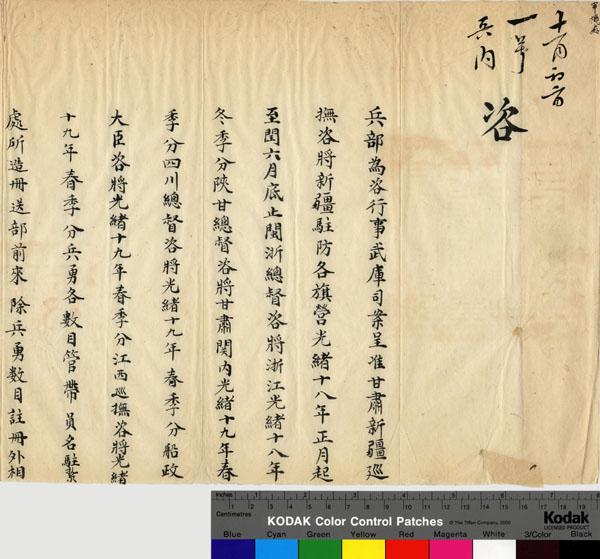 咨
兵部為咨行事武庫司案呈准甘肅新疆巡
撫咨將新疆駐防各旗營光緒十八年正月起
至閏六月底止閩浙總督咨將浙江光緒十八年
冬季分陝甘總督咨將甘肅関內光緒十九年春
季分四川總督咨將光緒十九年春季分船政
大臣咨將光緒十九年春季分江西巡撫咨將光緒
十九年春季分兵勇各數目管帶員名駐紮
處所造冊送部前來除兵勇數目註冊外相
一号
兵內
Inches
Centimetres
KODAK Color Control Patches
© The Tiffen Company, 2000
Kodak
LICENSED PRODUCT
Blue Cyan Green Yellow Red Magenta White 3/Color Black